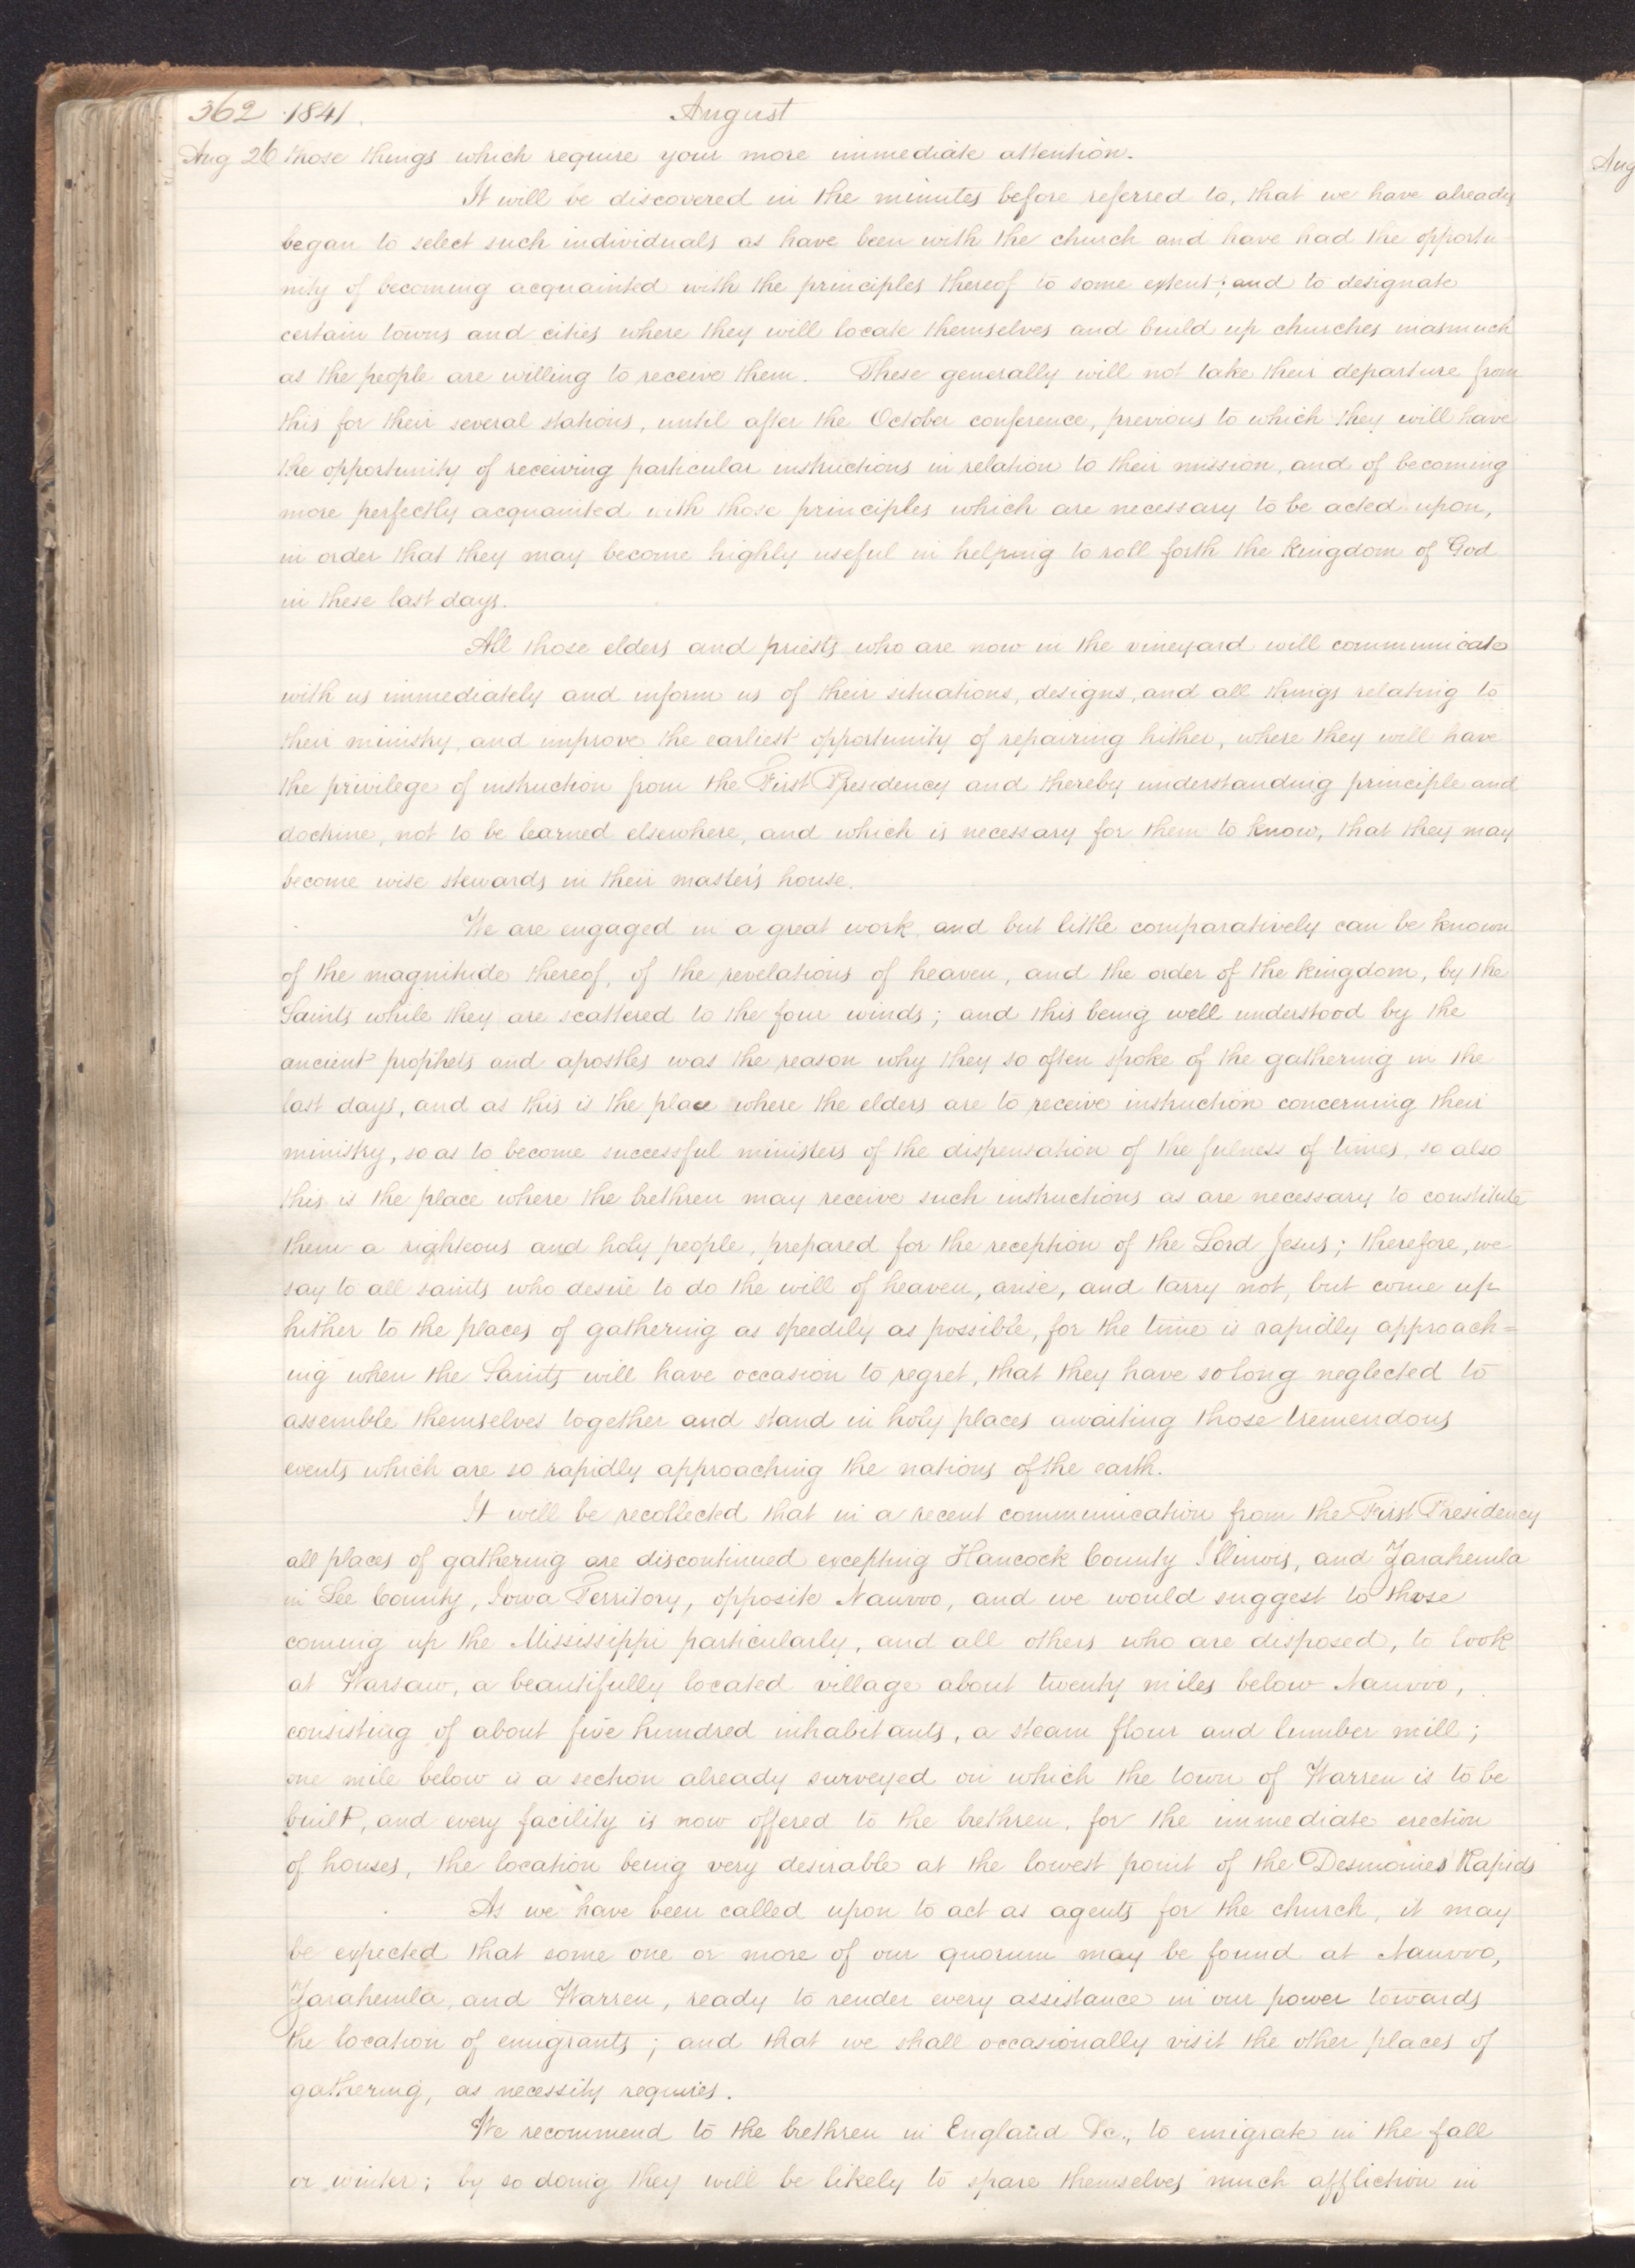 362 1841. August
Aug 26 those things which require your more immediate attention.
It will be discovered in the minutes before referred to, that we have already
began to select such individuals as have been with the church and have had the opportu-
nity of becoming acquainted with the principles thereof to some extent; and to designate
certain towns and cities where they will locate themselves and build up churches inasmuch
as the people are willing to receive them. These generally will not take their departure from
this for their several stations, until after the October conference, previous to which they will have
the opportunity of receiving particular instructions in relation to their mission, and of becoming
more perfectly acquainted with those principles which are necessary to be acted upon,
in order that they may become highly useful in helping to roll forth the kingdom of God
in these last days.
All those elders and priests who are now in the vineyard will communicate
with us immediately and inform us of their situations, designs, and all things relating to
their ministry, and improve the earliest opportunity of repairing hither, where they will have
the privilege of instruction from the First Presidency and thereby understanding principle and
doctrine, not to be learned elsewhere, and which is necessary for them to know, that they may
become wise stewards in their master's house.
We are engaged in a great work, and but little comparatively can be known
of the magnitude thereof, of the revelations of heaven, and the order of the kingdom, by the
Saints while they are scattered to the four winds; and this being well understood by the
ancient prophets and apostles was the reason why they so often spoke of the gathering in the
last days, and as this is the place where the elders are to receive instruction concerning their
ministry, so as to become successful ministers of the dispensation of the fulness of times, so also
this is the place where the brethren may receive such instructions as are necessary to constitute
them a righteous and holy people, prepared for the reception of the Lord Jesus; therefore, we
say to all saints who desire to do the will of heaven, arise, and tarry not, but come up
hither to the places of gathering as speedily as possible, for the time is rapidly approach=
ing when the Saints will have occasion to regret, that they have so long neglected to
assemble themselves together and stand in holy places awaiting those tremendous
events which are so rapidly approaching the nations of the earth.
It will be recollected that in a recent communication from the First Presidency
all places of gathering are discontinued excepting Hancock County Illinois, and Zarahemla
in Lee County, Iowa Territory, opposite Nauvoo, and we would suggest to those
coming up the Mississippi particularly, and all others who are disposed, to look
at Warsaw, a beautifully located village about twenty miles below Nauvoo,
consisting of about five hundred inhabitants, a steam flour and lumber mill;
one mile below is a section already surveyed on which the town of Warren is to be
built, and every facility is now offered to the brethren, for the immediate erection
of houses, the location being very desirable at the lowest point of the Desmoines Rapids
As we have been called upon to act as agents for the church, it may
be expected that some one or more of our quorum may be found at Nauvoo,
Zarahemla, and Warren, ready to render every assistance in our power towards
the location of emigrants; and that we shall occasionally visit the other places of
gathering, as necessity requires.
We recommend to the brethren in England &c., to emigrate in the fall
or winter; by so doing they will be likely to spare themselves much affliction in
Aug